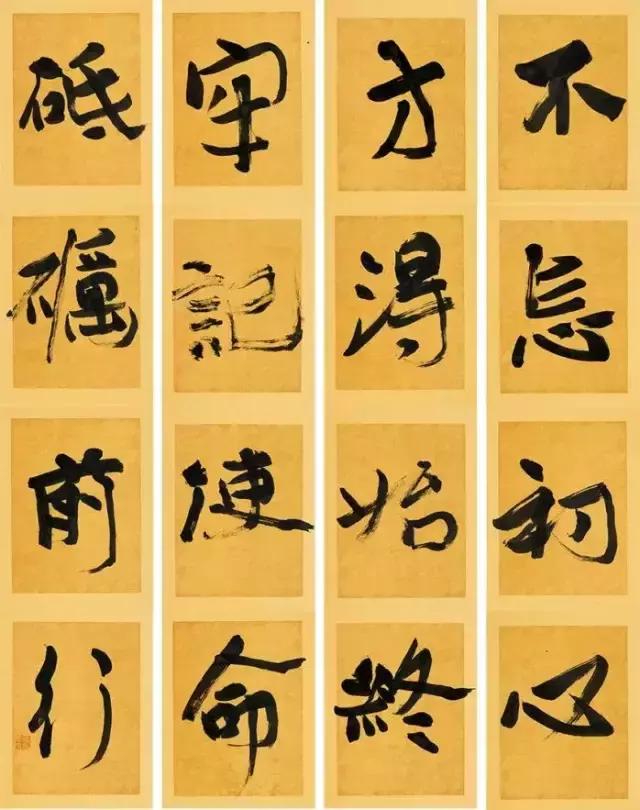 不忘初心
方得始終
牢記使命
砥礪前行